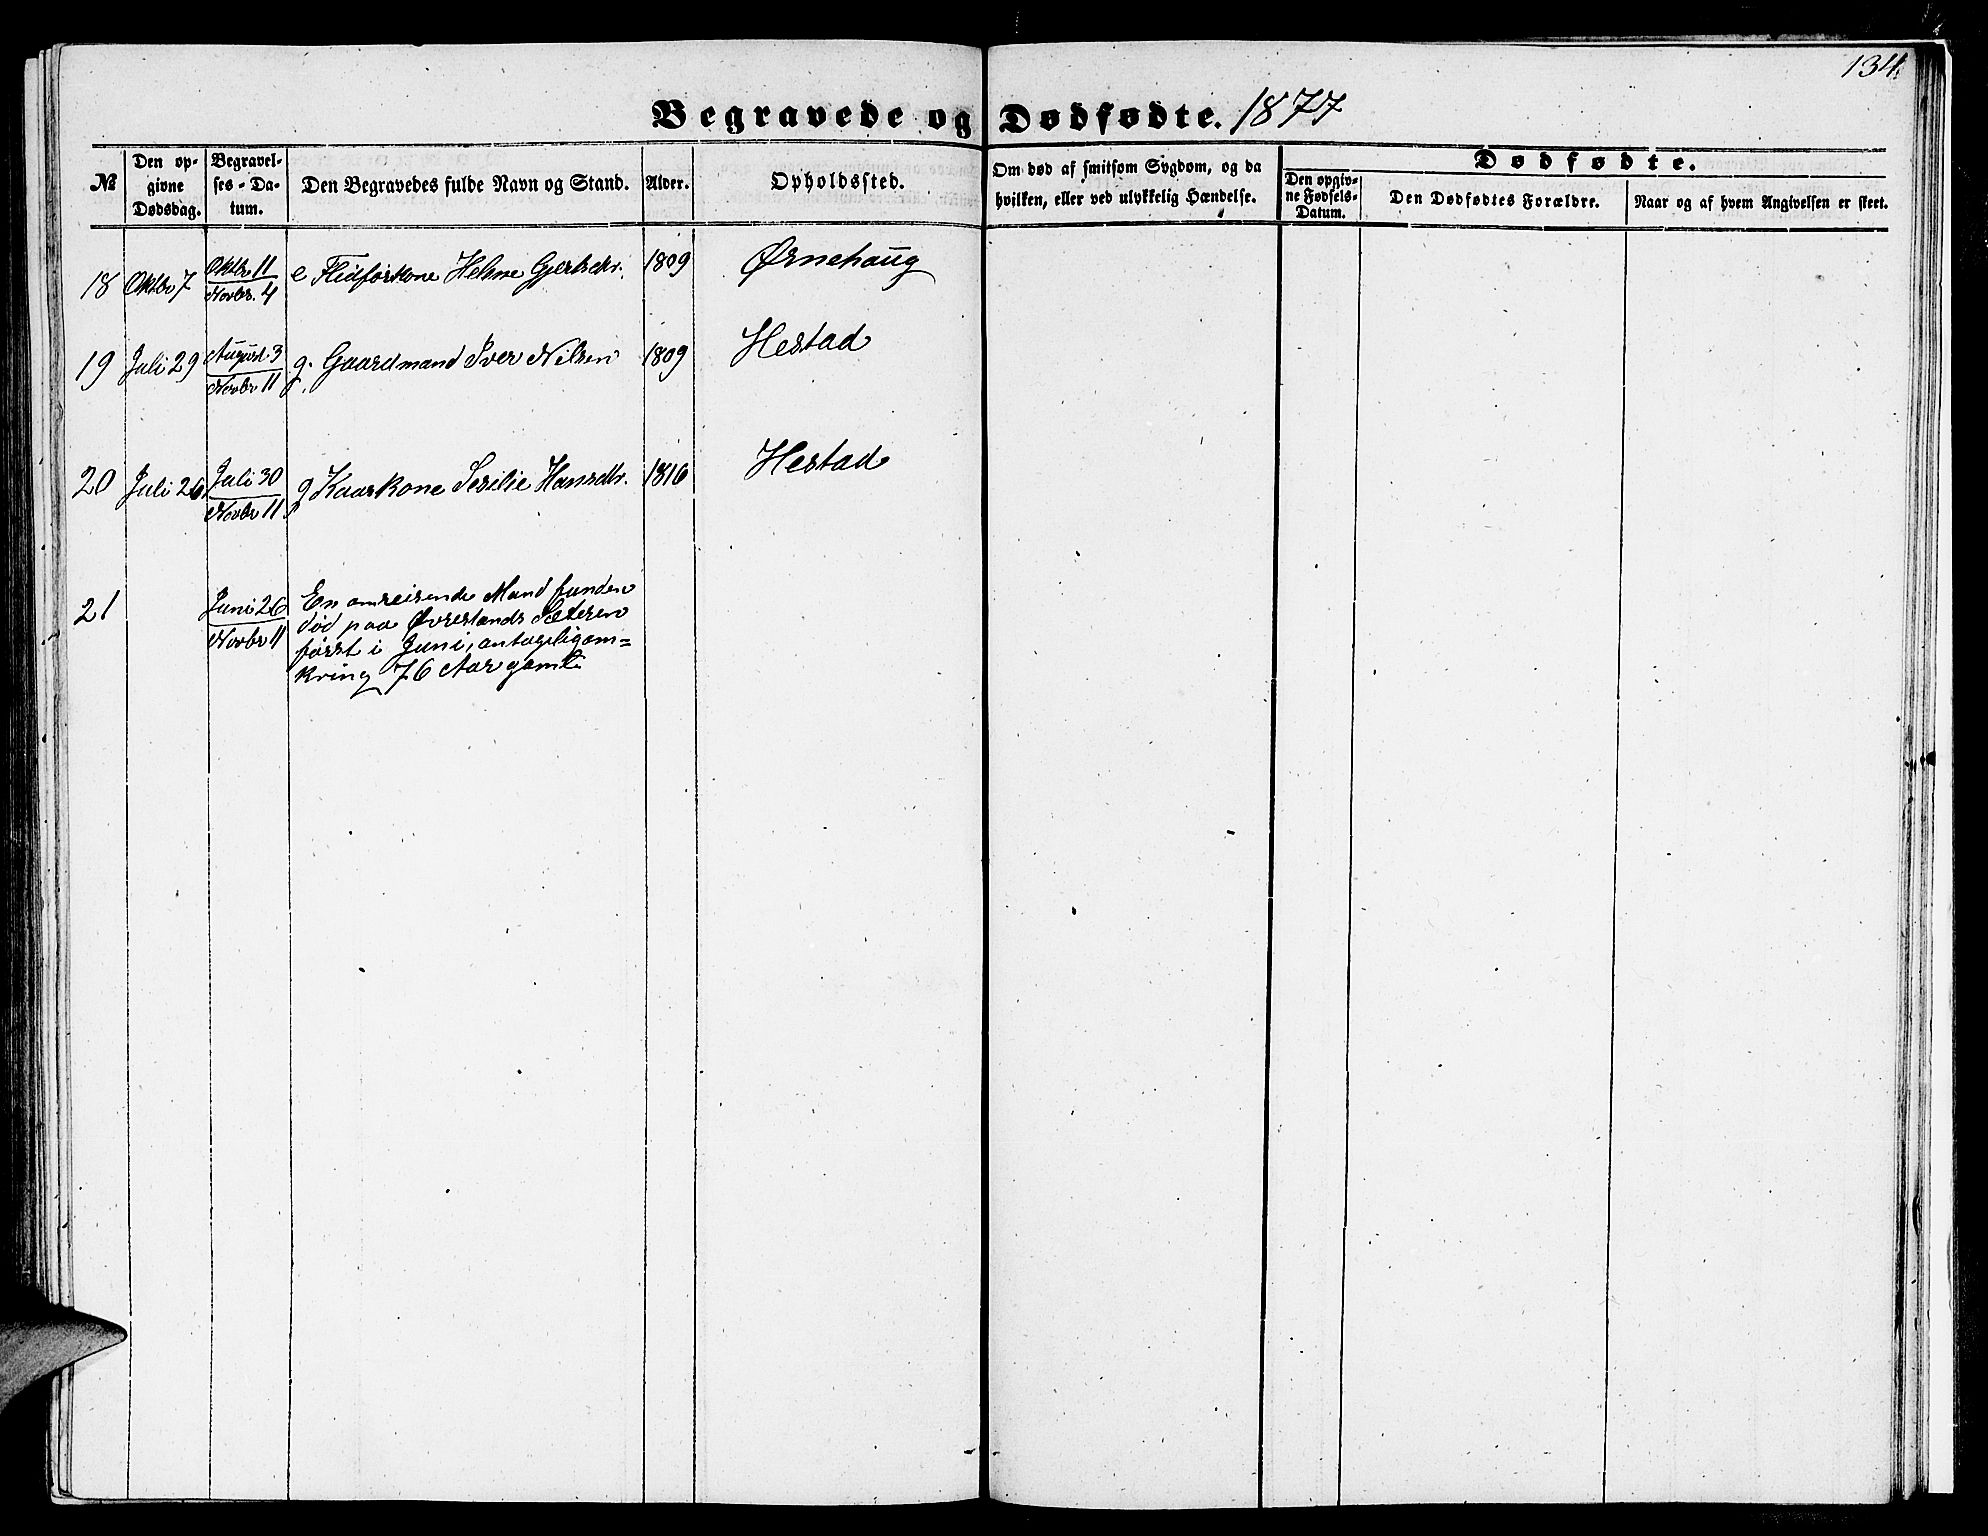 134.
Begravede og Dødfødte. 1877
№
Den op-
givne
Dødsdag.
Begravel-
ses-Da-
tum.
Den Begravedes fulde Navn og Stand.
Alder.
Opholdssted.
Om død af smitsom Sygdom, og da
hvilken, eller ved ulykkelig Hændelse.
Dødfødte.
Den opgiv-
ne Fødsels-
Datum.
Den Dødfødtes Forældre.
Naar og af hvem Angivelsen er skeet.
18 Oktbr 7 Oktbr 11 Novbr. 4 e Flidførkone Helene Gjertsdtr. 1809 Ørnehaug
19 Juli 29 August 3 Novbr 11 g. Gaardmand Iver Nilsen 1809 Hestad
20 Juli 26 Juli 30 Novbr 11 g Kaarkone Sesilie Hansdtr. 1816 Hestad
21 Juni 26 Novbr 11 En omreisende Mand funden
død paa Øvrestands Sæteren
først i Juni, antageligom=
kring 76 Aar gaml